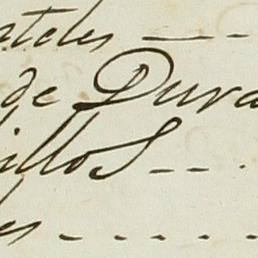 ateles
de Dura
illos
es